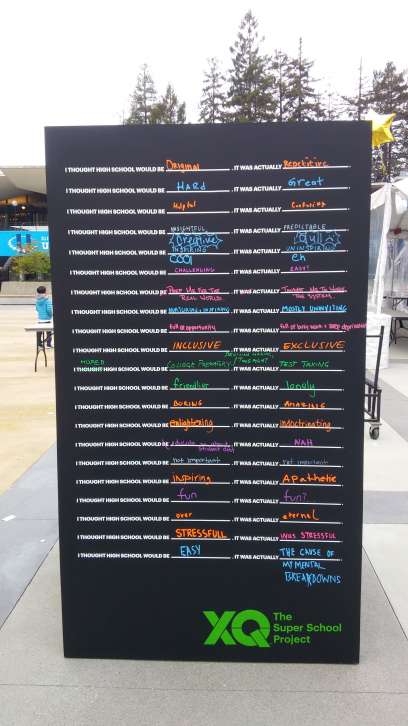 I THOUGHT HIGH SCHOOL WOULD BE Original . IT WAS ACTUALLY Repetitive .
I THOUGHT HIGH SCHOOL WOULD BE HARd . IT WAS ACTUALLY Great .
I THOUGHT HIGH SCHOOL WOULD BE Helpful . IT WAS ACTUALLY Confusing .
I THOUGHT HIGH SCHOOL WOULD BE INSIGHTFUL . IT WAS ACTUALLY PREDICTABLE .
Creative dull
I THOUGHT HIGH SCHOOL WOULD BE INSPIRING . IT WAS ACTUALLY UNINSPIRING .
COOl eh
I THOUGHT HIGH SCHOOL WOULD BE CHALLENGING . IT WAS ACTUALLY EASY? .
I THOUGHT HIGH SCHOOL WOULD BE PREP ME FOR THE . IT WAS ACTUALLY TAUGHT ME TO WORK .
REAL WORLD THE SYSTEM.
I THOUGHT HIGH SCHOOL WOULD BE NURTURING, INSPIRING . IT WAS ACTUALLY MOSTLY UNINVITING .
I THOUGHT HIGH SCHOOL WOULD BE full of opportunity . IT WAS ACTUALLY full of busy work + sleep deprivation .
I THOUGHT HIGH SCHOOL WOULD BE INCLUSIVE . IT WAS ACTUALLY EXCLUSIVE .
MORE
I THOUGHT HIGH SCHOOL WOULD BE COLLEGE PREPARATORY . IT WAS ACTUALLY TEST TAKING .
I THOUGHT HIGH SCHOOL WOULD BE friendlier . IT WAS ACTUALLY lonely .
I THOUGHT HIGH SCHOOL WOULD BE BORING . IT WAS ACTUALLY AMAZING .
I THOUGHT HIGH SCHOOL WOULD BE enlightening . IT WAS ACTUALLY indoctrinating .
I THOUGHT HIGH SCHOOL WOULD BE educate us about . IT WAS ACTUALLY NAH .
student debt
I THOUGHT HIGH SCHOOL WOULD BE not important . IT WAS ACTUALLY important .
I THOUGHT HIGH SCHOOL WOULD BE INSpiring . IT WAS ACTUALLY APathetic .
I THOUGHT HIGH SCHOOL WOULD BE fun . IT WAS ACTUALLY fun? .
I THOUGHT HIGH SCHOOL WOULD BE over . IT WAS ACTUALLY eternal .
I THOUGHT HIGH SCHOOL WOULD BE STRESSFULL . IT WAS ACTUALLY STRESSFUL .
I THOUGHT HIGH SCHOOL WOULD BE EASY . IT WAS ACTUALLY THE CAUSE OF .
MY MENTAL
BREAKDOWNS
XQ The
Super School
Project